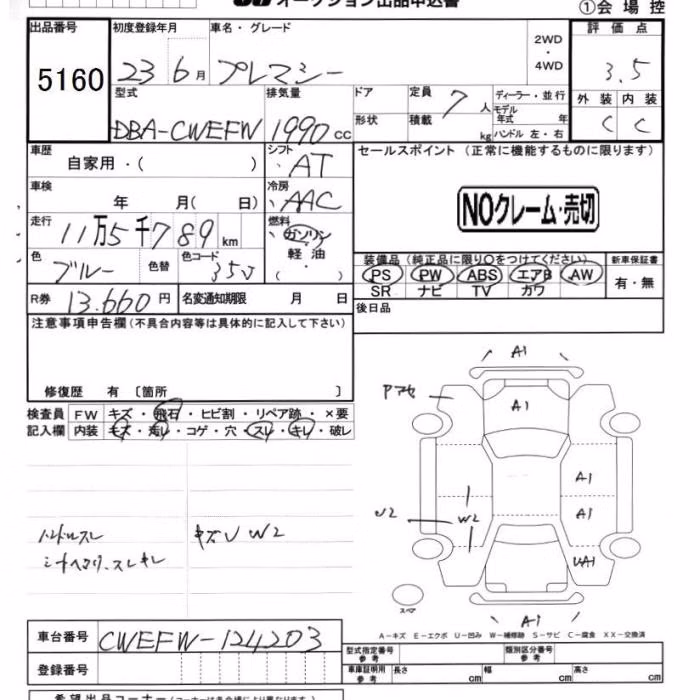 オークション出品申込書
①会場控
出品番号 初度登録年月 車名・グレード 2WD・4WD 評価点
5160 23 6月 プレマシー 3.5
型式 排気量 ドア 定員 7人 ディーラー・並行 外装 内装
モデル年式 年
DBA-CWEFW 1990cc 形状 積載 kg ハンドル 左・右 C C
車歴 自家用・( ) シフト AT セールスポイント (正常に機能するものに限ります)
車検 年 月( 日) 冷房 AAC NOクレーム・売切
走行 11万5千789km 燃料 ガソリン
軽油
( )
色 ブルー 色替 色コード 35J
装備品 (純正品に限り○をつけてください) 新車保証書
PS PW ABS エアB AW 有・無
SR ナビ TV カワ
R券 13.660円 名変通知期限 月 日 後日品
注意事項申告欄(不具合内容等は具体的に記入して下さい)
修復歴 有 〔箇所 〕
検査員 FW キズ・飛石・ヒビ割・リペア跡・×要
記入欄 内装 キズ・汚レ・コゲ・穴・スレ・キレ・破レ
A1
A1
A1
U2 W2 A1
UA1
ハンドルスレ キズU W2
スペア
A1
A-キズ E-エクボ U-凹み W-補修跡 S-サビ C-腐食 XX-交換済
車台番号 CWEFW-124203
登録番号
型式指定番号 参考 類別区分番号 参考
車庫証明用 参考 長さ cm 幅 cm 高さ cm
希望出品コーナー